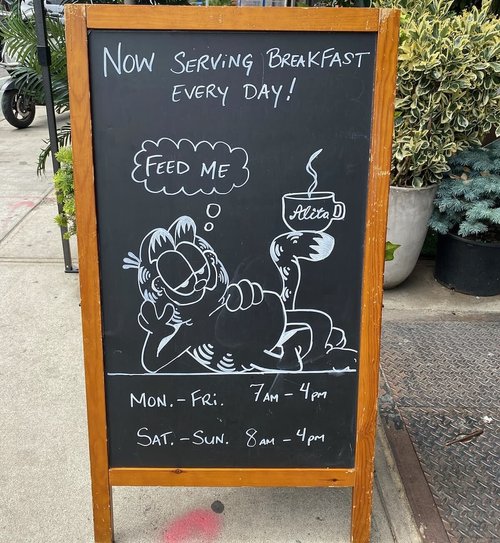 Now Serving Breakfast
Every Day!
Feed Me
Alita
Mon.-Fri. 7am-4pm
Sat.-Sun. 8am-4pm